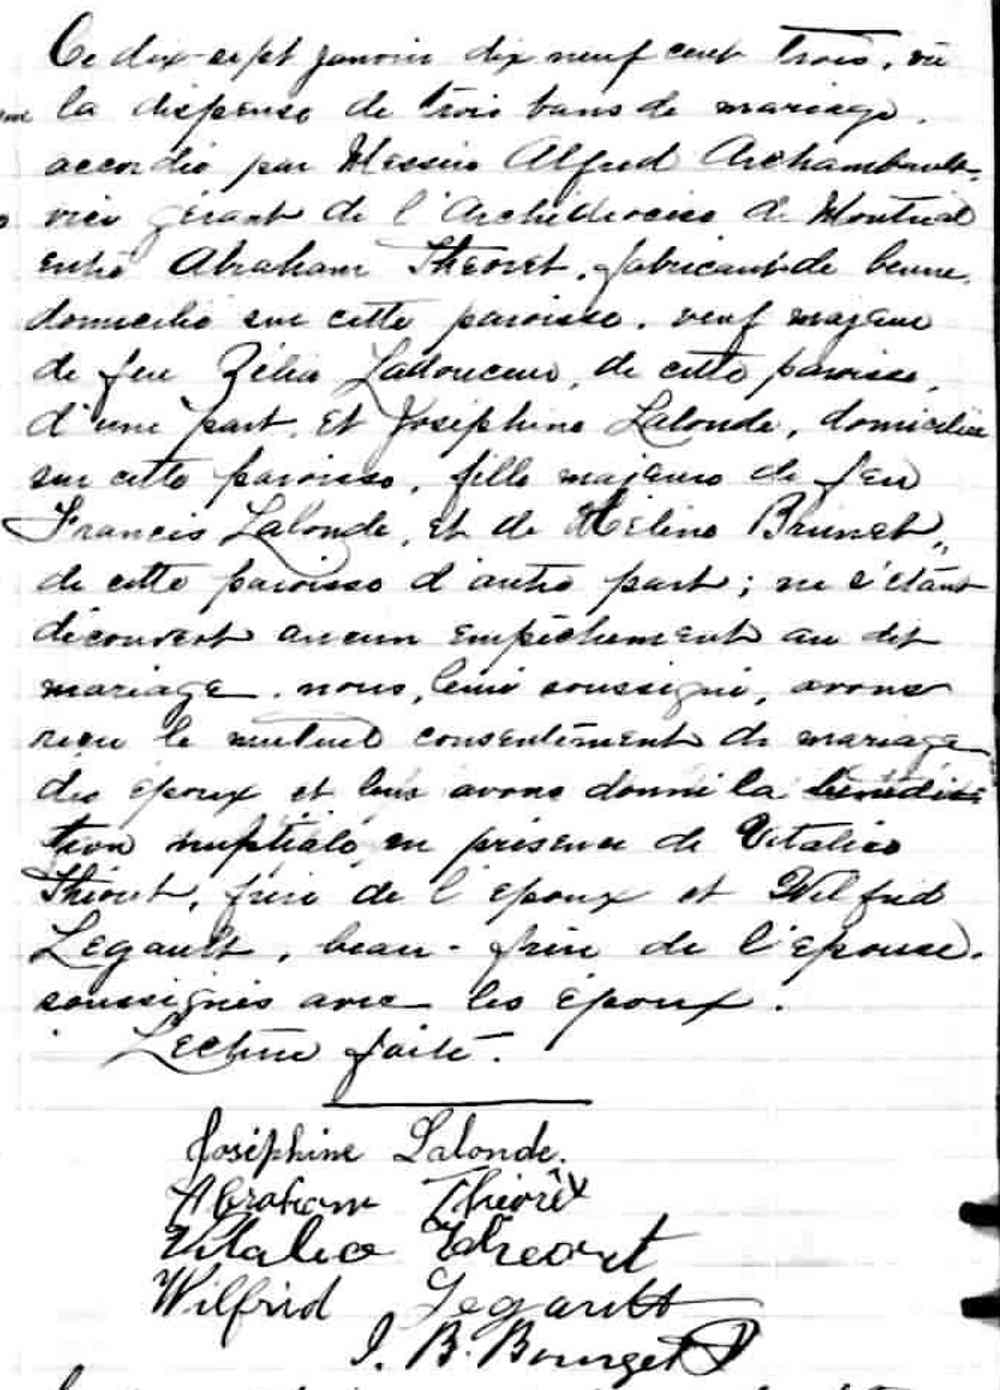 Ce dix-sept janvier dix neuf cent trois, vu
la dispense de trois bans de mariage,
accordée par Messire Alfred Archambault,
vice gérant de l'Archidiocèse de Montréal
entre Abraham Théoret, fabricant de beurre,
domicilié sur cette paroisse, veuf majeur
de feu Zélia Ladouceur, de cette paroisse,
d'une part, et Joséphine Lalonde, domiciliée
sur cette paroisse, fille majeure de feu
Francis Lalonde, et de Méline Brunet,
de cette paroisse d'autre part; ne s'étant
découvert aucun empêchement au dit
mariage, nous, curé soussigné, avons
reçu le mutuel consentement de mariage
des époux et leur avons donné la bénédic-
tion nuptiale, en présence de Vitalica
Théoret, frère de l'époux et Wilfrid
Legault, beau-frère de l'épouse,
soussignés avec les époux.
Lecture faite.
Joséphine Lalonde.
Abraham Théorêt
Vitalica Théoret
Wilfrid Legault
J. B. Bourget